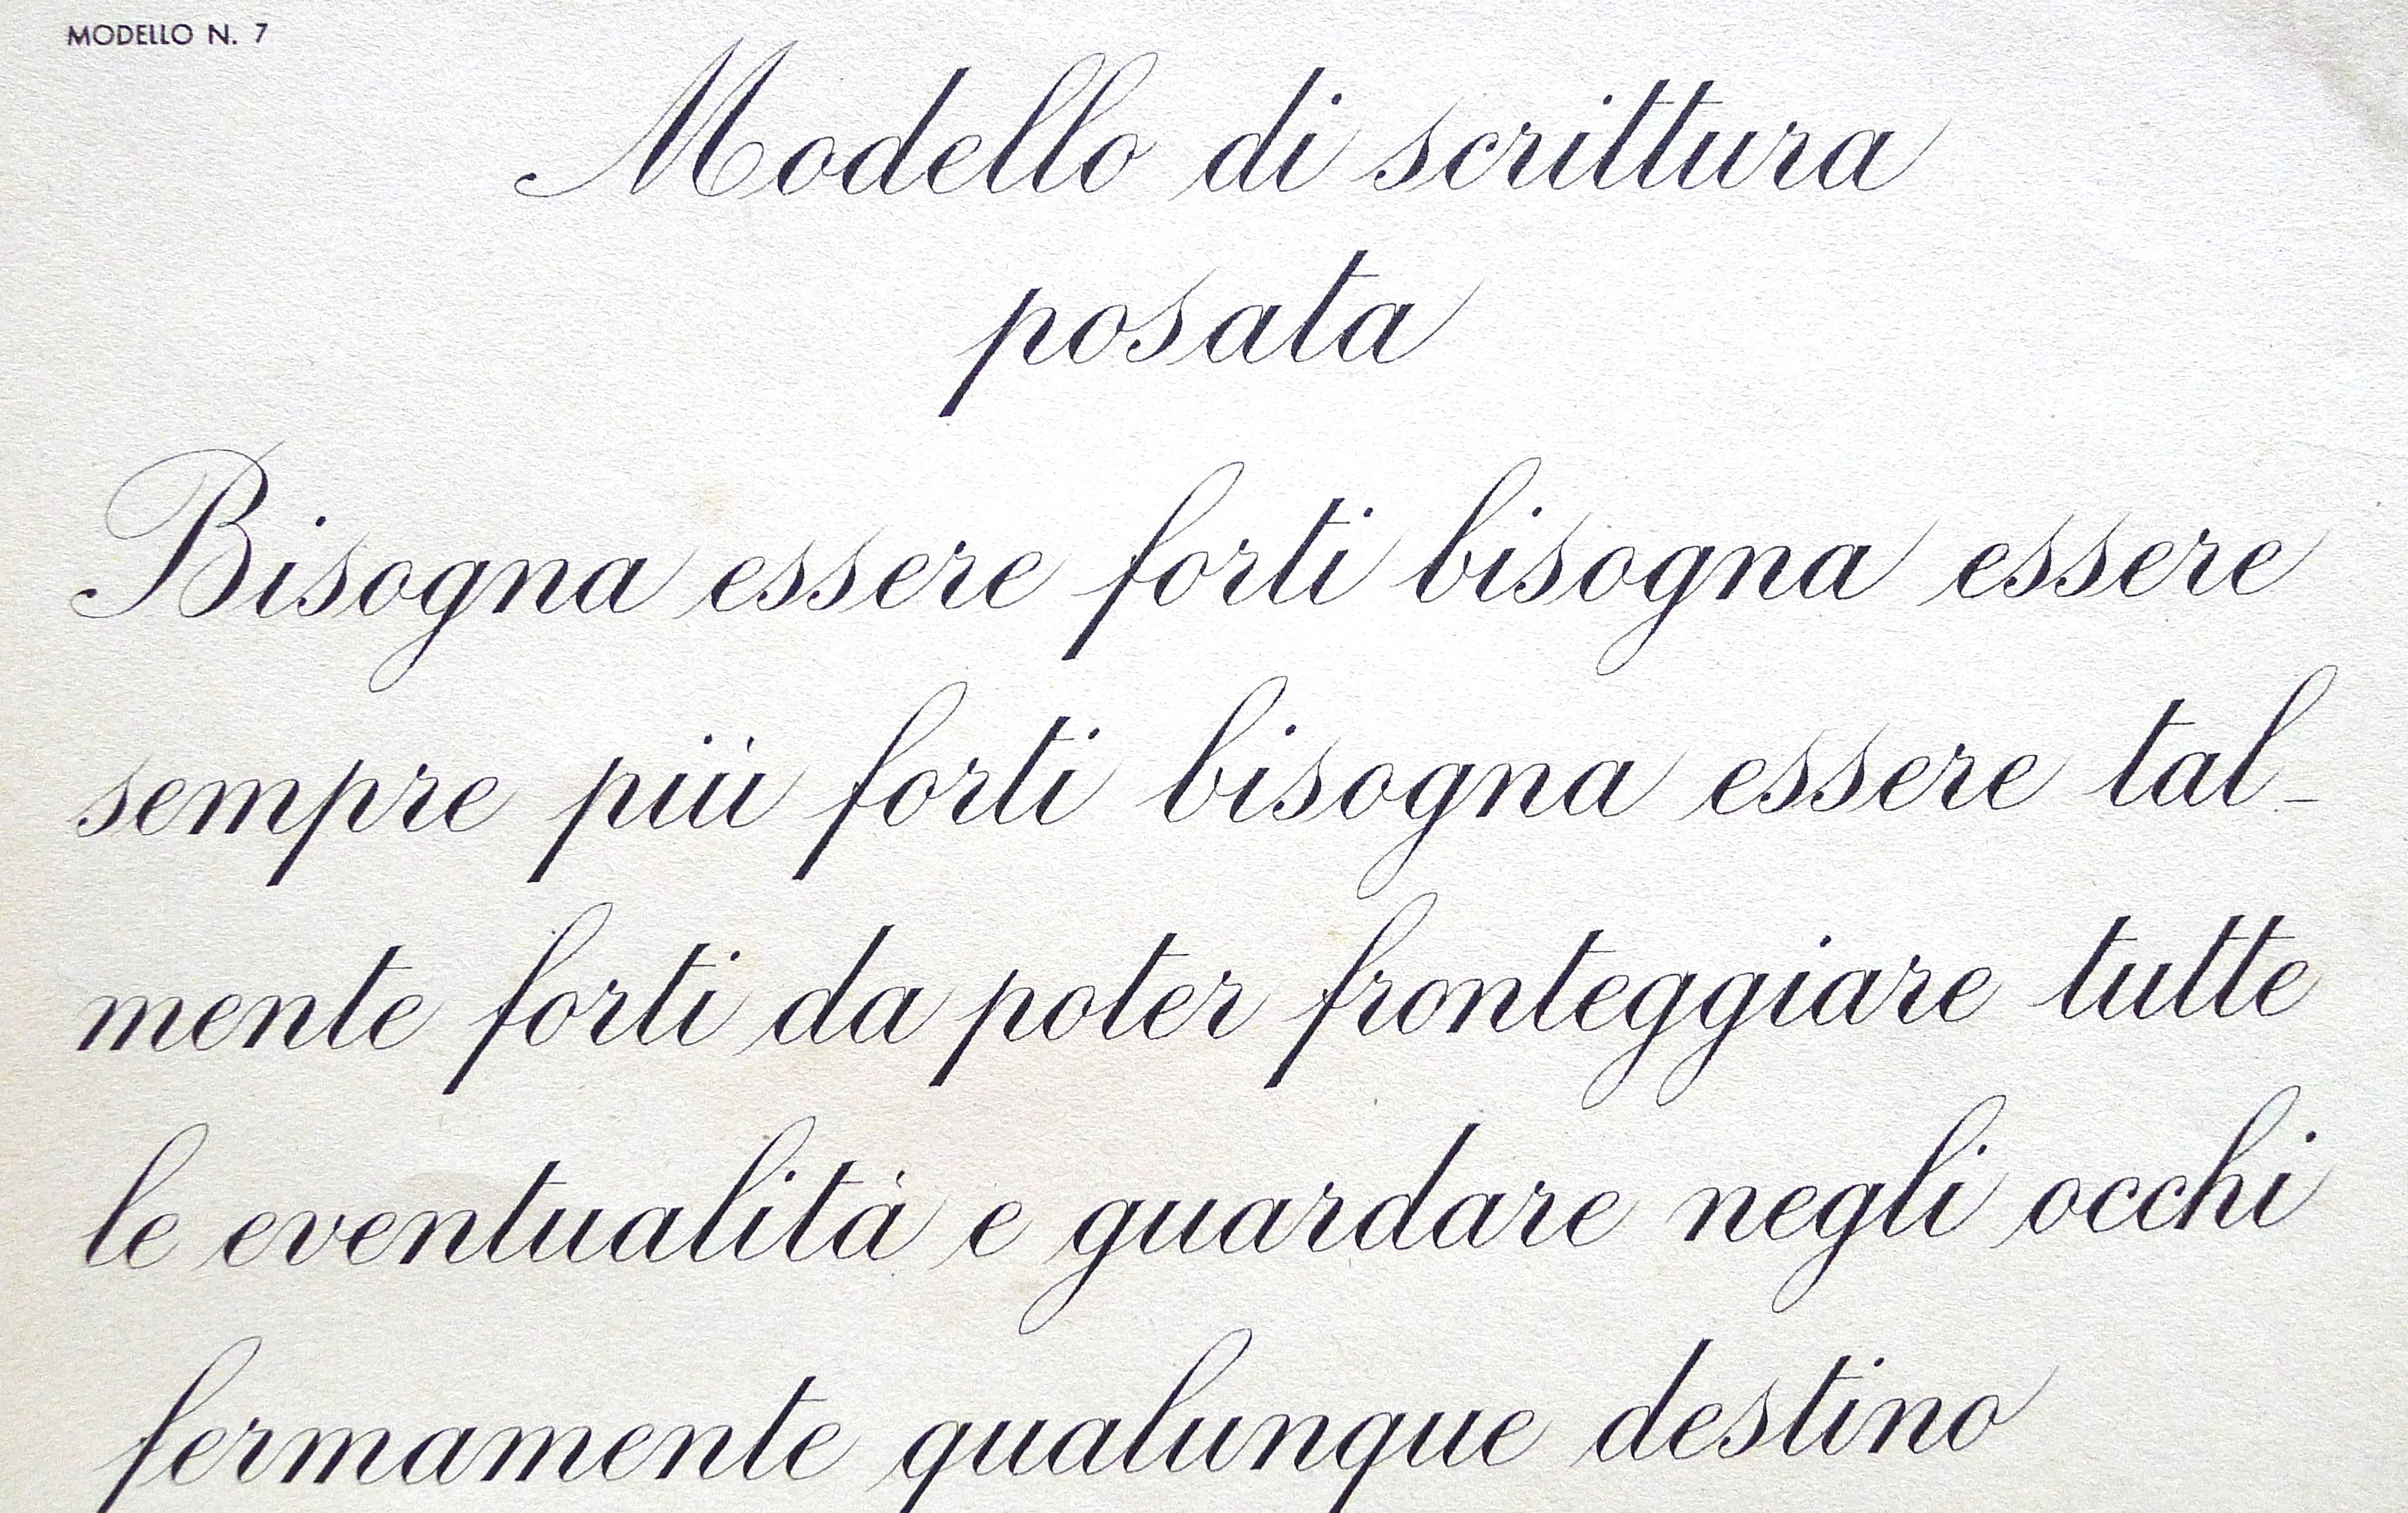 MODELLO N. 7
Modello di scrittura
posata
Bisogna essere forti bisogna essere
sempre più forti bisogna essere tal-
mente forti da poter fronteggiare tutte
le eventualità e guardare negli occhi
fermamente qualunque destino